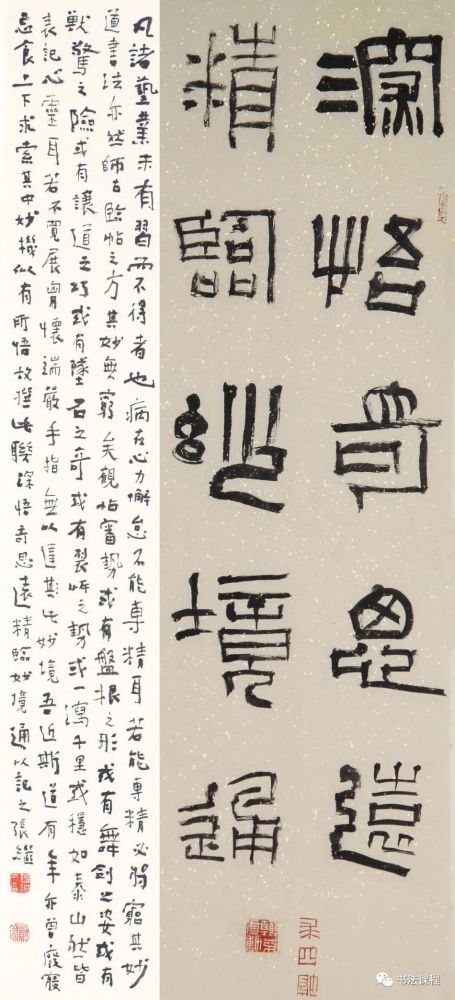 深悟奇思遠
精臨妙境通
凡諸藝業未有習而不得者也病在心力懈怠不能專精耳若能專精必將窮其妙
道書法亦然師古臨帖之方其妙無窮矣觀帖審勢或有盤根之形或有舞劍之姿或有
獸驚之險或有讓道之巧或有墜石之奇或有裂岸之勢或一瀉千里或穩如泰山然皆
表記心靈耳若不寬展胸懷端嚴手指無以達斯妙境吾近斯道有年亦曾廢寢
忘食上下求索其中妙機似有所悟故撰此聯深悟奇思遠精臨妙境通以記之張繼
书法课程